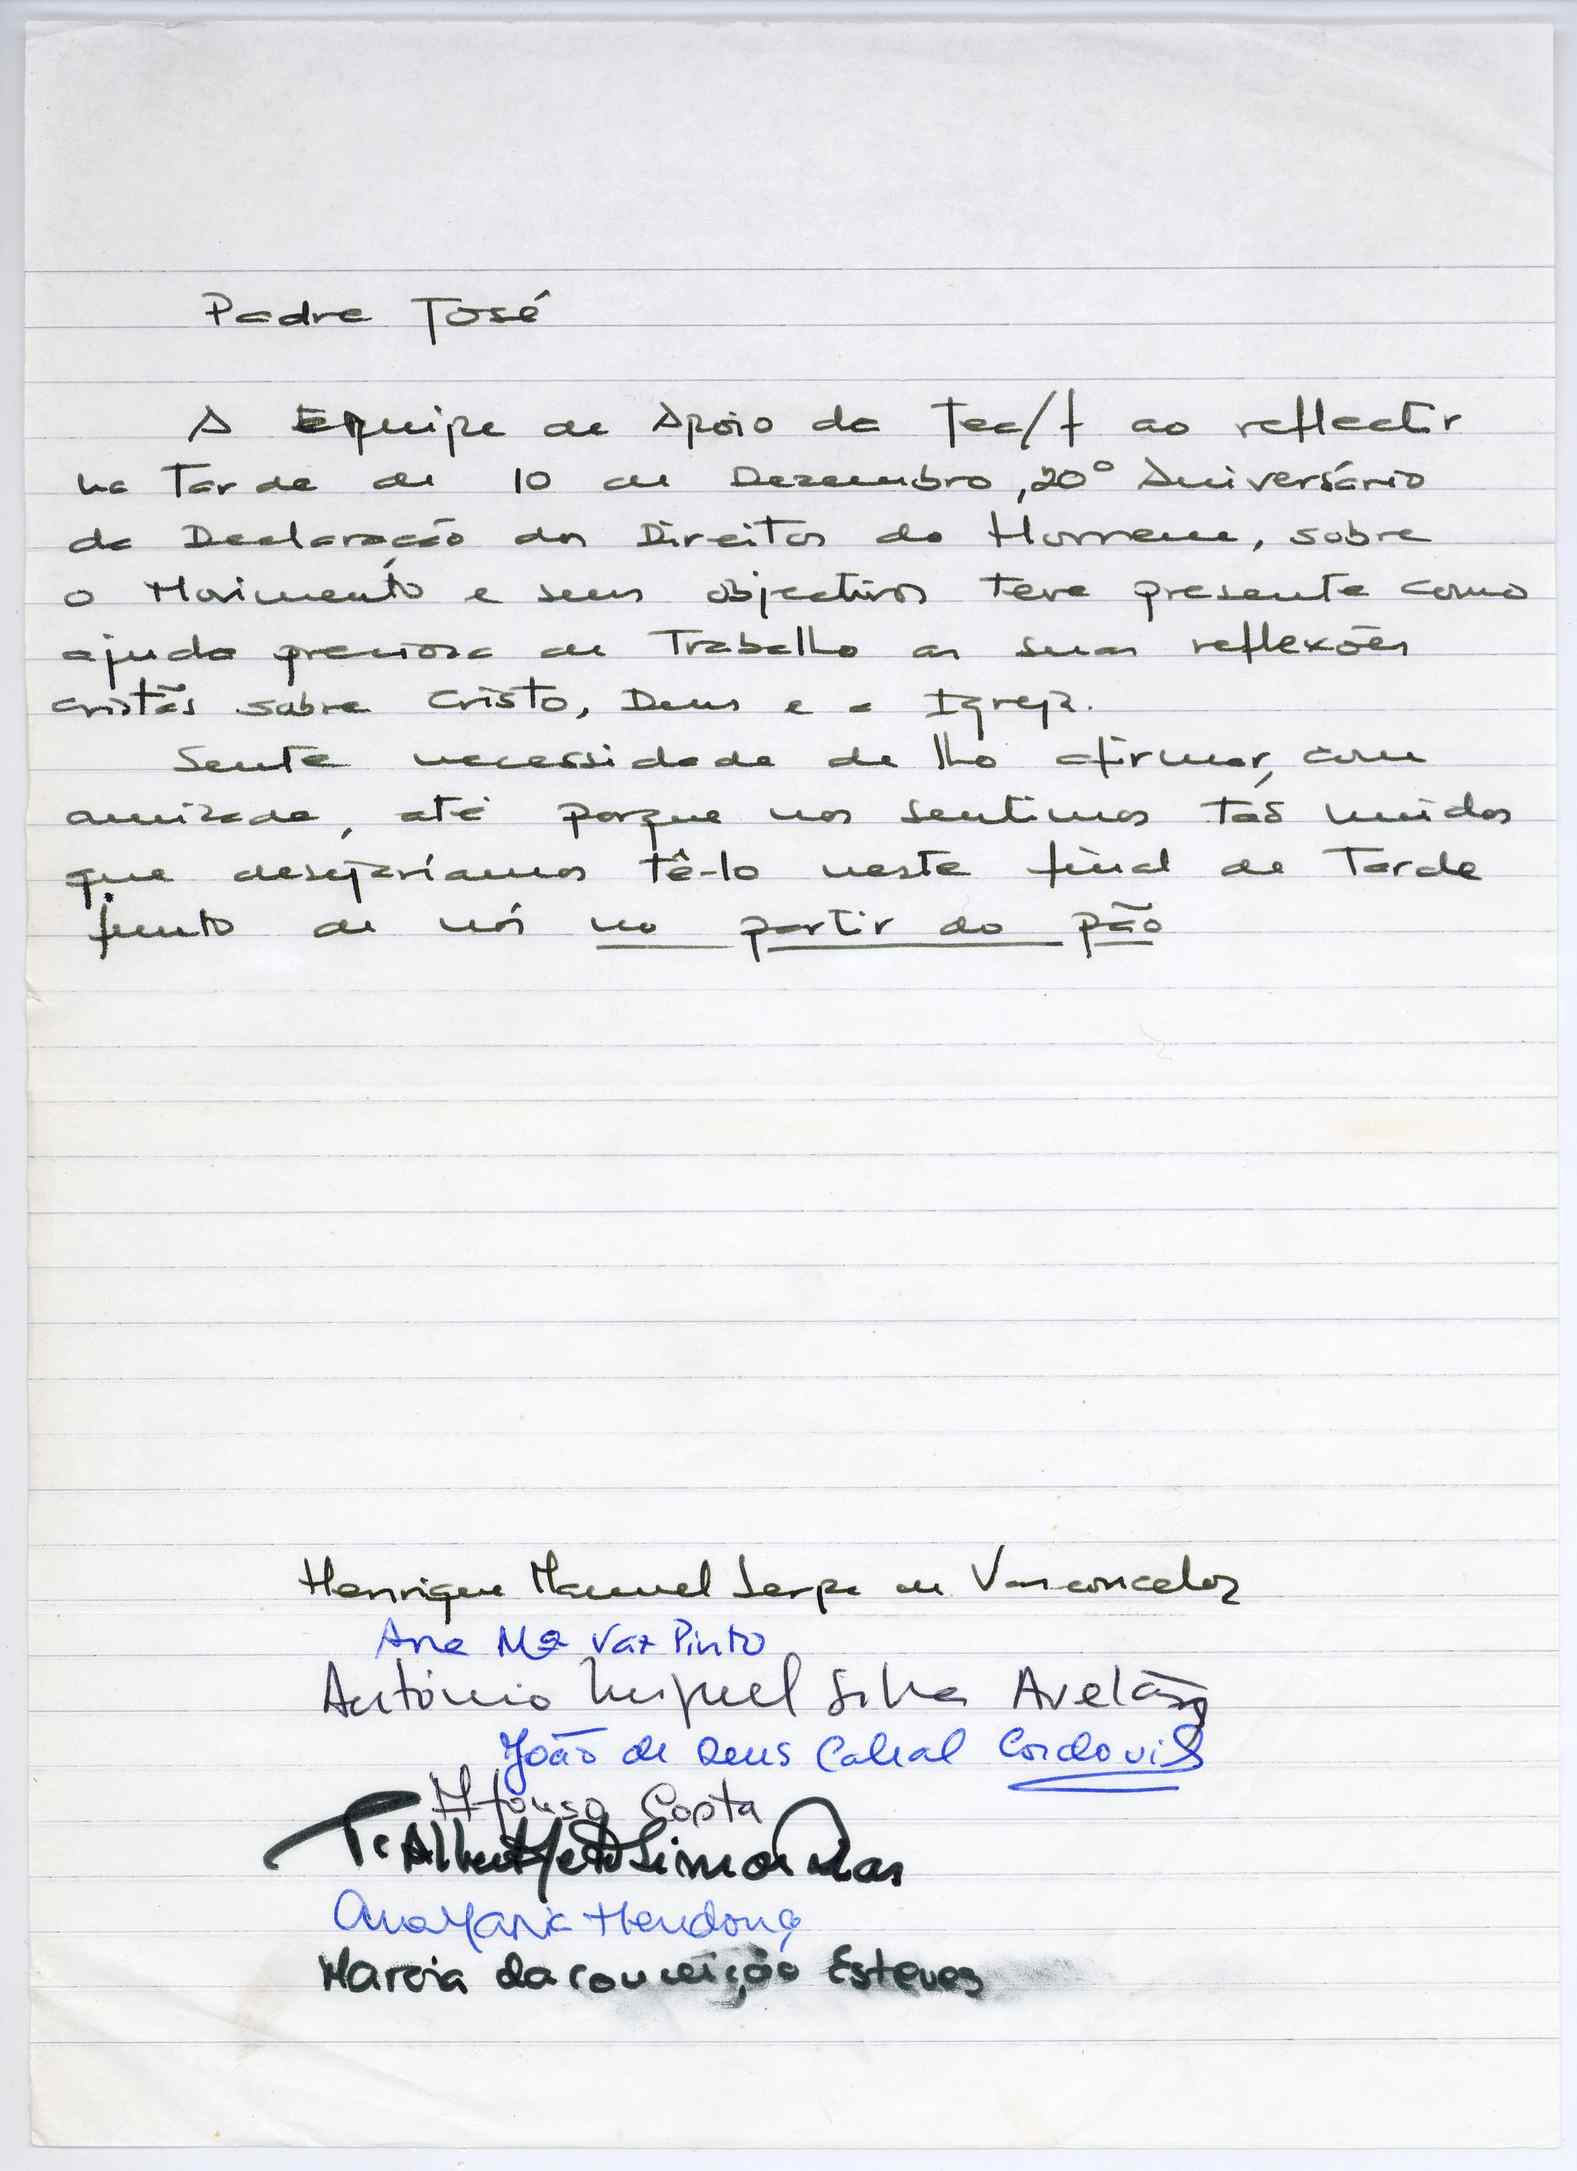 Padre José
A Equipe de Apoio da Tec/f ao reflectir
na Tarde de 10 de Dezembro, 20º Aniversário
da Declaração dos Direitos do Homem, sobre
o Movimento e seus objectivos teve presente como
ajuda preciosa de Trabalho as suas reflexões
cristãs sobre Cristo, Deus e a Igreja.
Sente necessidade de lho afirmar, com
amizade, até porque nos sentimos tão unidos
que desejaríamos tê-lo neste final de Tarde
junto de nós no partir do pão
Henrique Manuel Serpa de Vasconcelos
Ana Mª Vaz Pinto
António Miguel Silva Avelãs
João de Deus Cabral Cordovil
Afonso Costa
Pe Alberto Neto Simões Dias
Ana Maria Mendonça
Marcia da Conceição Esteves